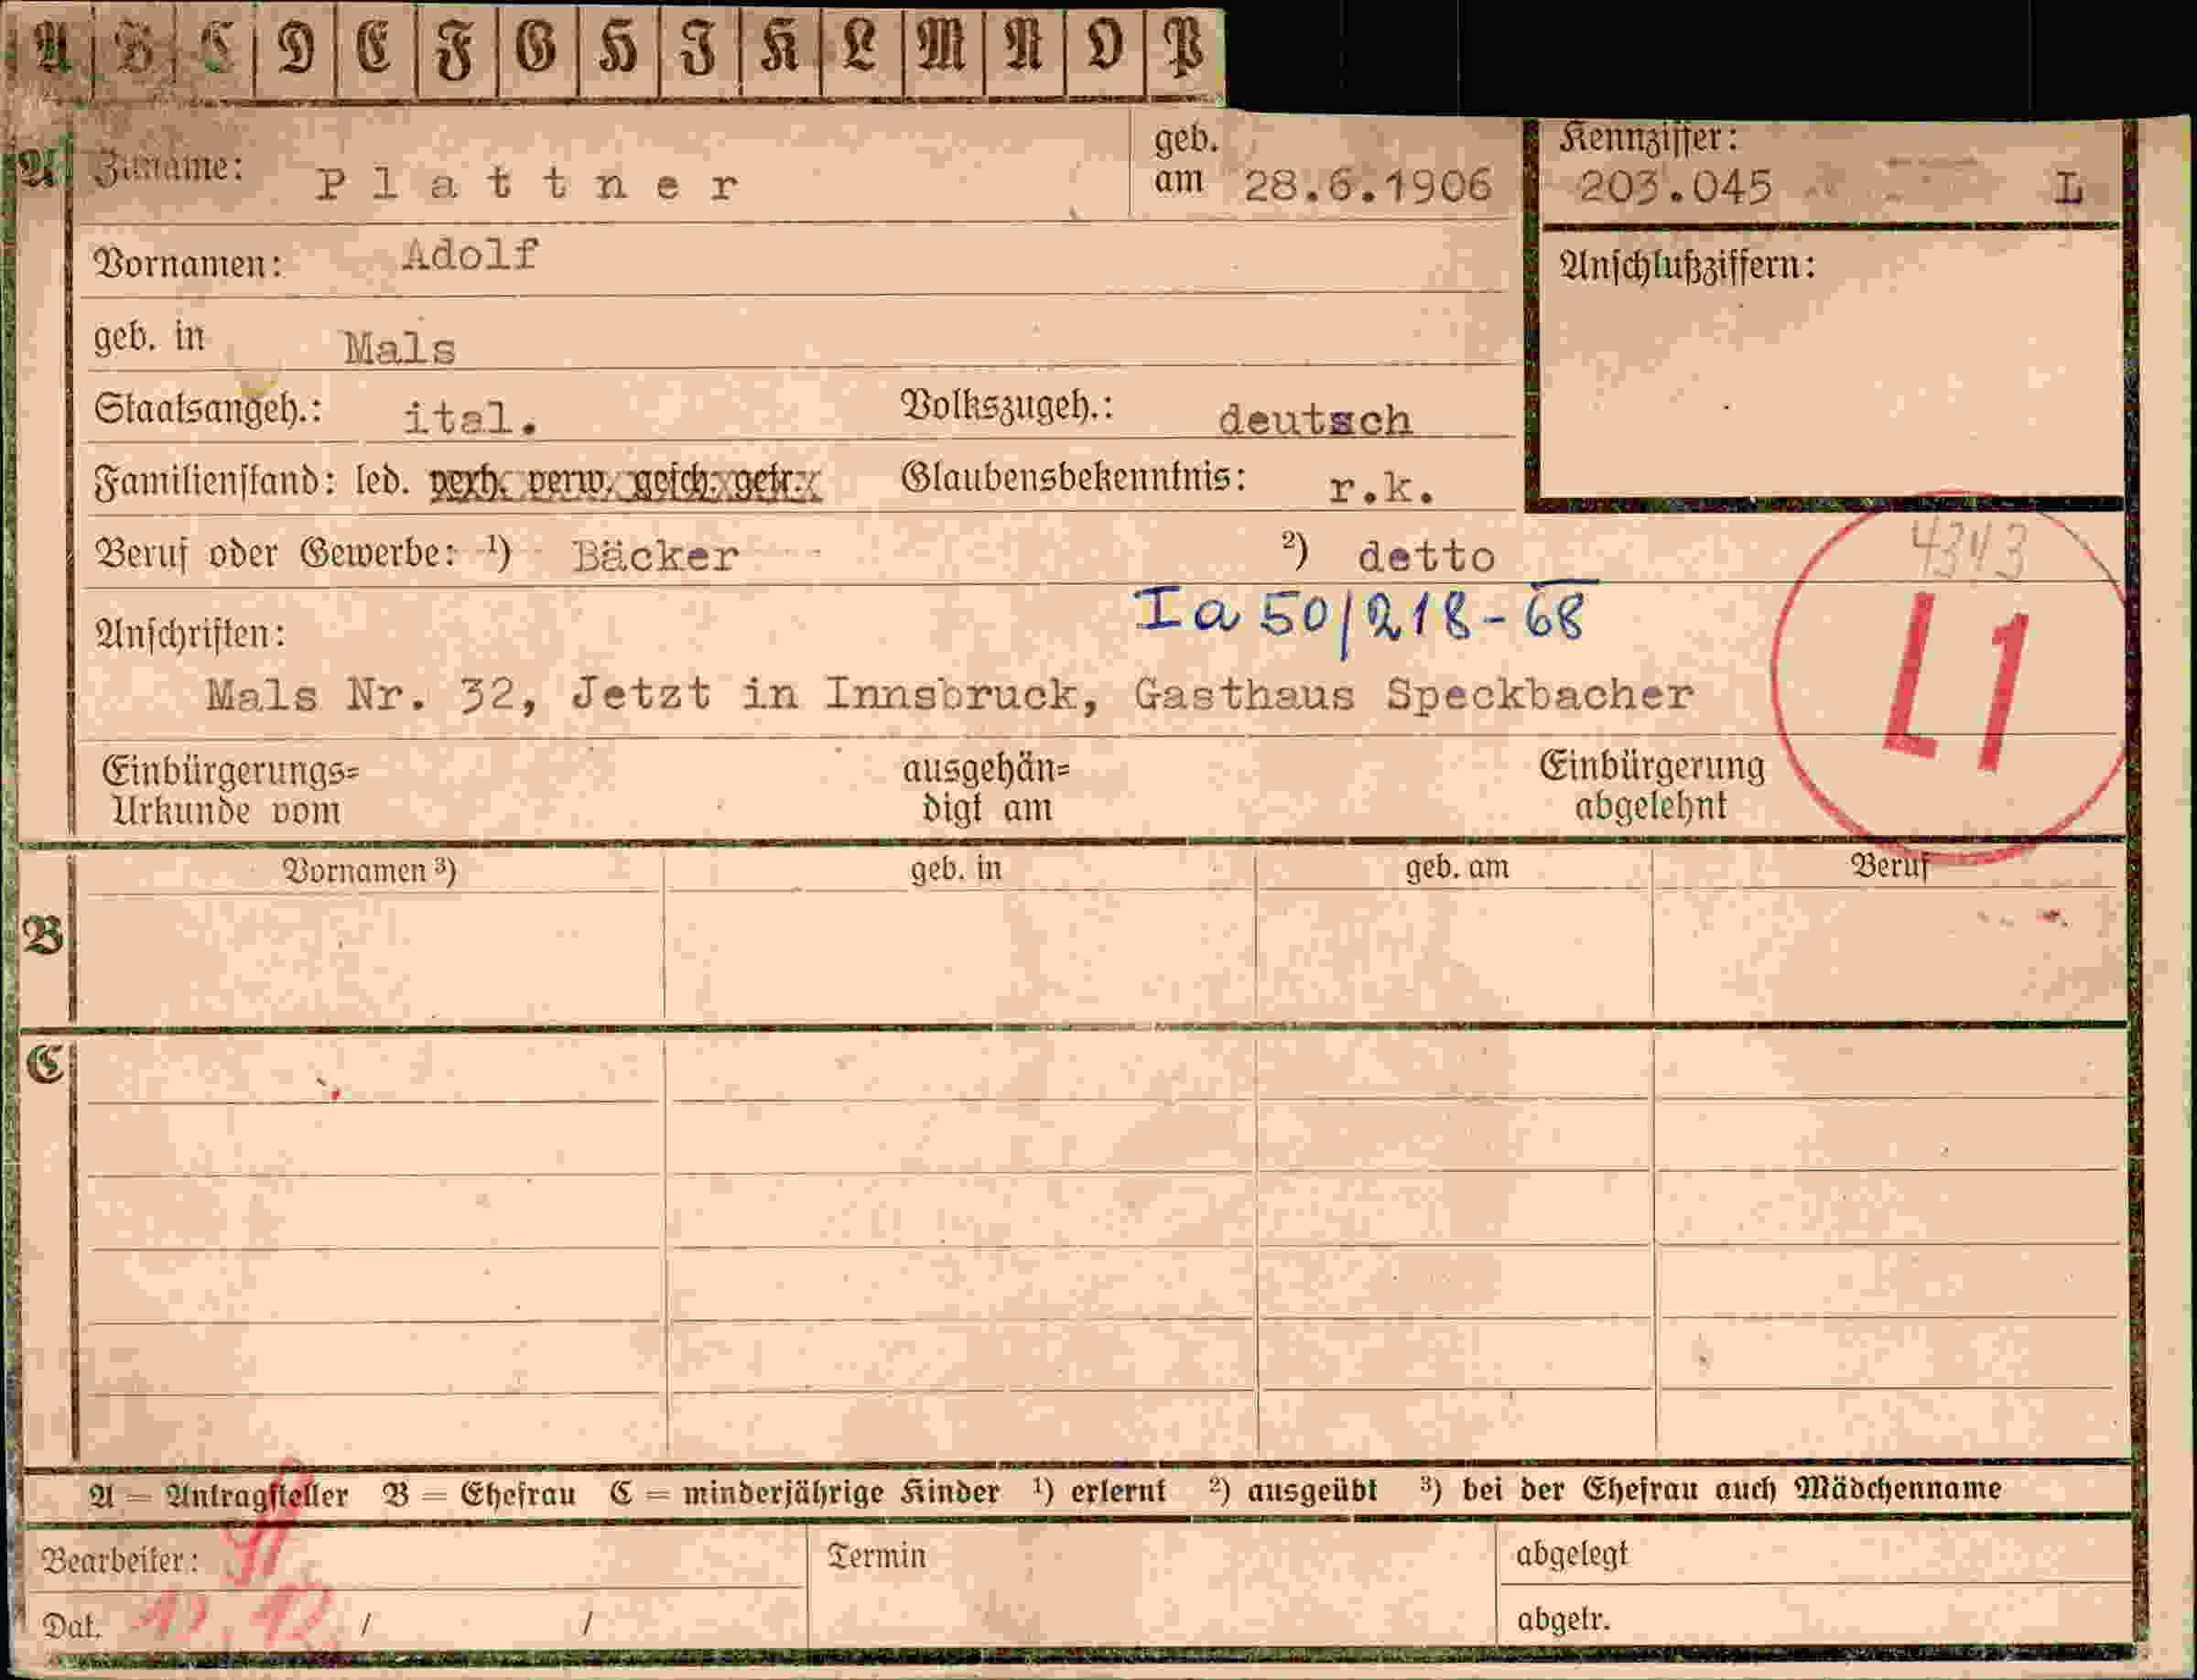 A B C D E F G H J K L M N O P
A Zuname: Plattner geb. am 28.6.1906 Kennziffer: 203.045 L
Vornamen: Adolf Anschlußziffern:
geb. in Mals
Staatsangeh.: ital. Volkszugeh.: deutsch
Familienstand: led. verh. verw. gesch. getr. Glaubensbekenntnis: r.k.
Beruf oder Gewerbe: 1) Bäcker 2) detto
4343
Ia 50/218-68
L1
Anschriften:
Mals Nr. 32, Jetzt in Innsbruck, Gasthaus Speckbacher
Einbürgerungs= ausgehän= Einbürgerung
Urkunde vom digt am abgelehnt
Vornamen 3) geb. in geb. am Beruf
B
C
A = Antragsteller B = Ehefrau C = minderjährige Kinder 1) erlernt 2) ausgeübt 3) bei der Ehefrau auch Mädchenname
Bearbeiter: Termin abgelegt
Dat. 12. 12. / / abgetr.